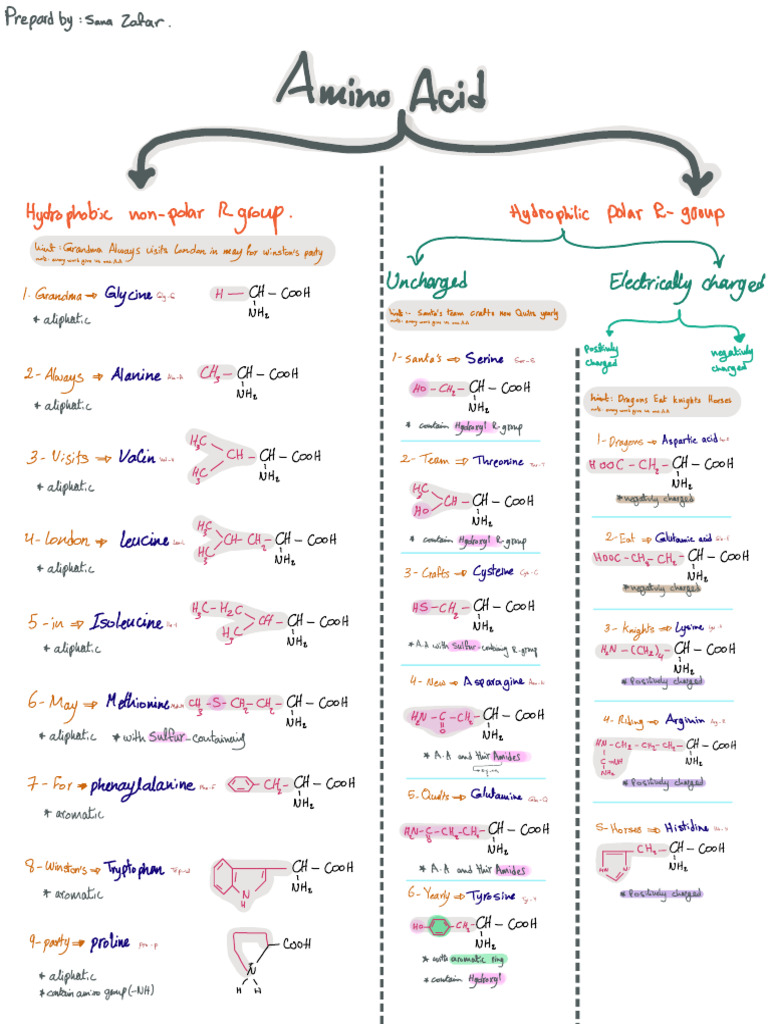 Prepard by : Sana Zafar.
Amino Acid
Hydrophobic non-polar R group.
hint : Grandma Always visits London in may for winston's party
note: every word give us one A.A
1. Grandma → Glycine Gly-G
H — CH — COOH
NH2
* aliphatic
2- Always → Alanine Ala-A
CH3 — CH — COOH
NH2
* aliphatic
3- Visits → Valin Val-V
H3C
H3C
CH — CH — COOH
NH2
* aliphatic
4- London → Leucine Leu-L
H3C
H3C
CH — CH2 — CH — COOH
NH2
* aliphatic
5- in → Isoleucine
H3C — H2C
H3C
CH — CH — COOH
NH2
* aliphatic
6- May → Methionine Met-M
CH3 — S — CH2 — CH2 — CH — COOH
NH2
* aliphatic * with Sulfur-containing
7- For → phenaylalanine Phe-F
CH2 — CH — COOH
NH2
* aromatic
8- Winston's → Tryptophan Trp-W
N
H
CH — COOH
NH2
* aromatic
9- party → proline Pro-P
COOH
N
H H
* aliphatic
* contain amino group (-NH)
Hydrophilic polar R-group
Uncharged
hint :- Santa's team crafts new Quilts yearly
note: every word give us one A.A
1- Santa's → Serine Ser-S
HO — CH2 — CH — COOH
NH2
* contain Hydroxyl R-group
2- Team → Threonine Thr-T
H3C
HO
CH — CH — COOH
NH2
* contain Hydroxyl R-group
3- Crafts → Cysteine Cys-C
HS — CH2 — CH — COOH
NH2
* A.A with sulfur-containing R-group
4- New → Asparagine Asn-N
H2N — C — CH2 — CH — COOH
O NH2
* A.A and their Amides
5- Quilts → Glutamine Gln-Q
H2N — C — CH2 — CH2 — CH — COOH
O NH2
* A.A and their Amides
6- Yearly → Tyrosine Tyr-Y
HO CH2 — CH — COOH
NH2
* with aromatic ring
* contain Hydroxyl
Electrically charged
Positivly charged
negativly charged
hint : Dragons Eat Knights Horses
note: every word give us one A.A
1- Dragons → Aspartic acid
HOOC — CH2 — CH — COOH
NH2
* negativly charged
2- Eat → Glutamic acid
HOOC — CH2 — CH2 — CH — COOH
NH2
* negativly charged
3- Knights → Lysine
H2N — (CH2)4 — CH — COOH
NH2
* Positivly charged
4- Riding → Arginin
HN — CH2 — CH2 — CH2 — CH — COOH
C = NH NH2
NH2
* Positivly charged
5- Horses → Histidine
CH2 — CH — COOH
HN N NH2
* Positivly charged